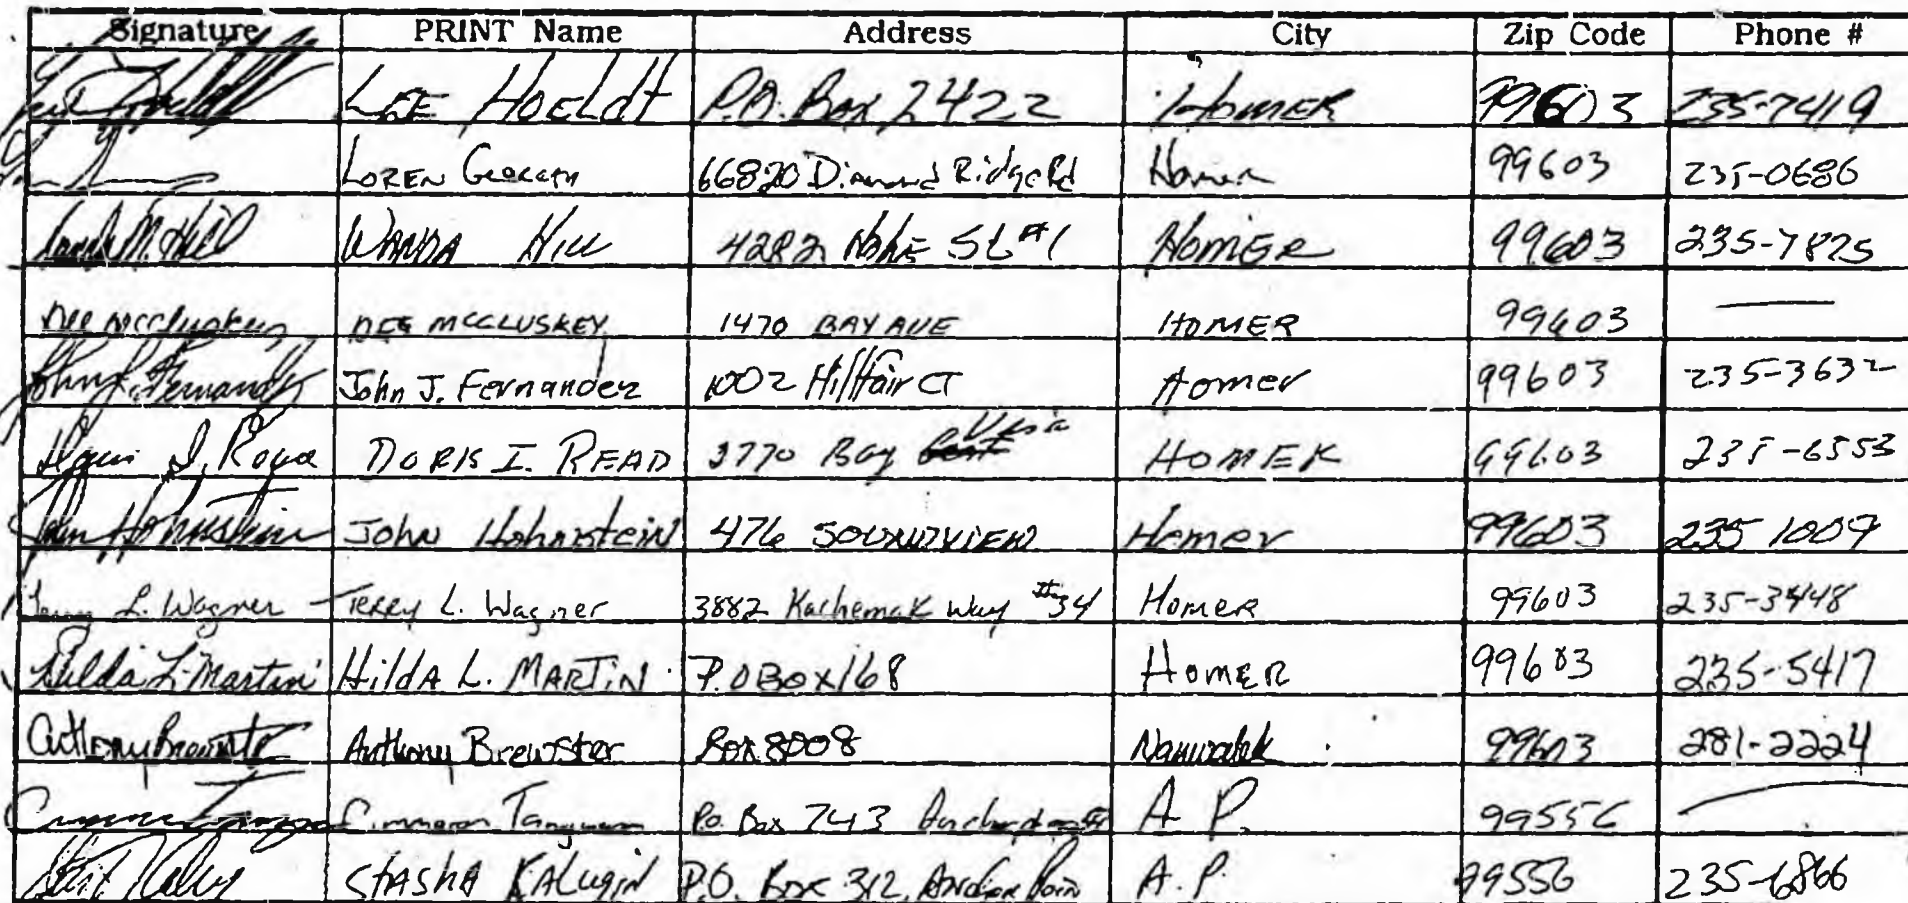 Signature PRINT Name Address City Zip Code Phone #
LEE HOELDT P.O. Box 2422 HOMER 99603 235-7419
LOREN 66820 Diamond Ridge Rd Homer 99603 235-0686
M. Hill WANDA HILL 4282 St #1 HOMER 99603 235-7825
Dee McCluskey DEE MCCLUSKEY 1470 BAY AVE HOMER 99603 —
John J. Fernandez John J. Fernandez 1002 Hillfair CT Homer 99603 235-3632
Doris I. DORIS I. READ 3770 Bay Vista HOMER 99603 235-6553
John Hohnstein John Hohnstein 476 SOUNDVIEW Homer 99603 235 1009
Terry L. Wagner Terry L. Wagner 3882 Kachemak Way #34 Homer 99603 235-3448
Hilda L. Martin Hilda L. MARTIN P.O Box 168 Homer 99603 235-5417
Anthony Brewster Anthony Brewster Box 8008 Nanwalek 99603 281-2224
P.O. Box 743 A P. 99556 —
STASHA KALUGIN P.O. Box 312, Anchor Poin A.P. 99556 235-6866